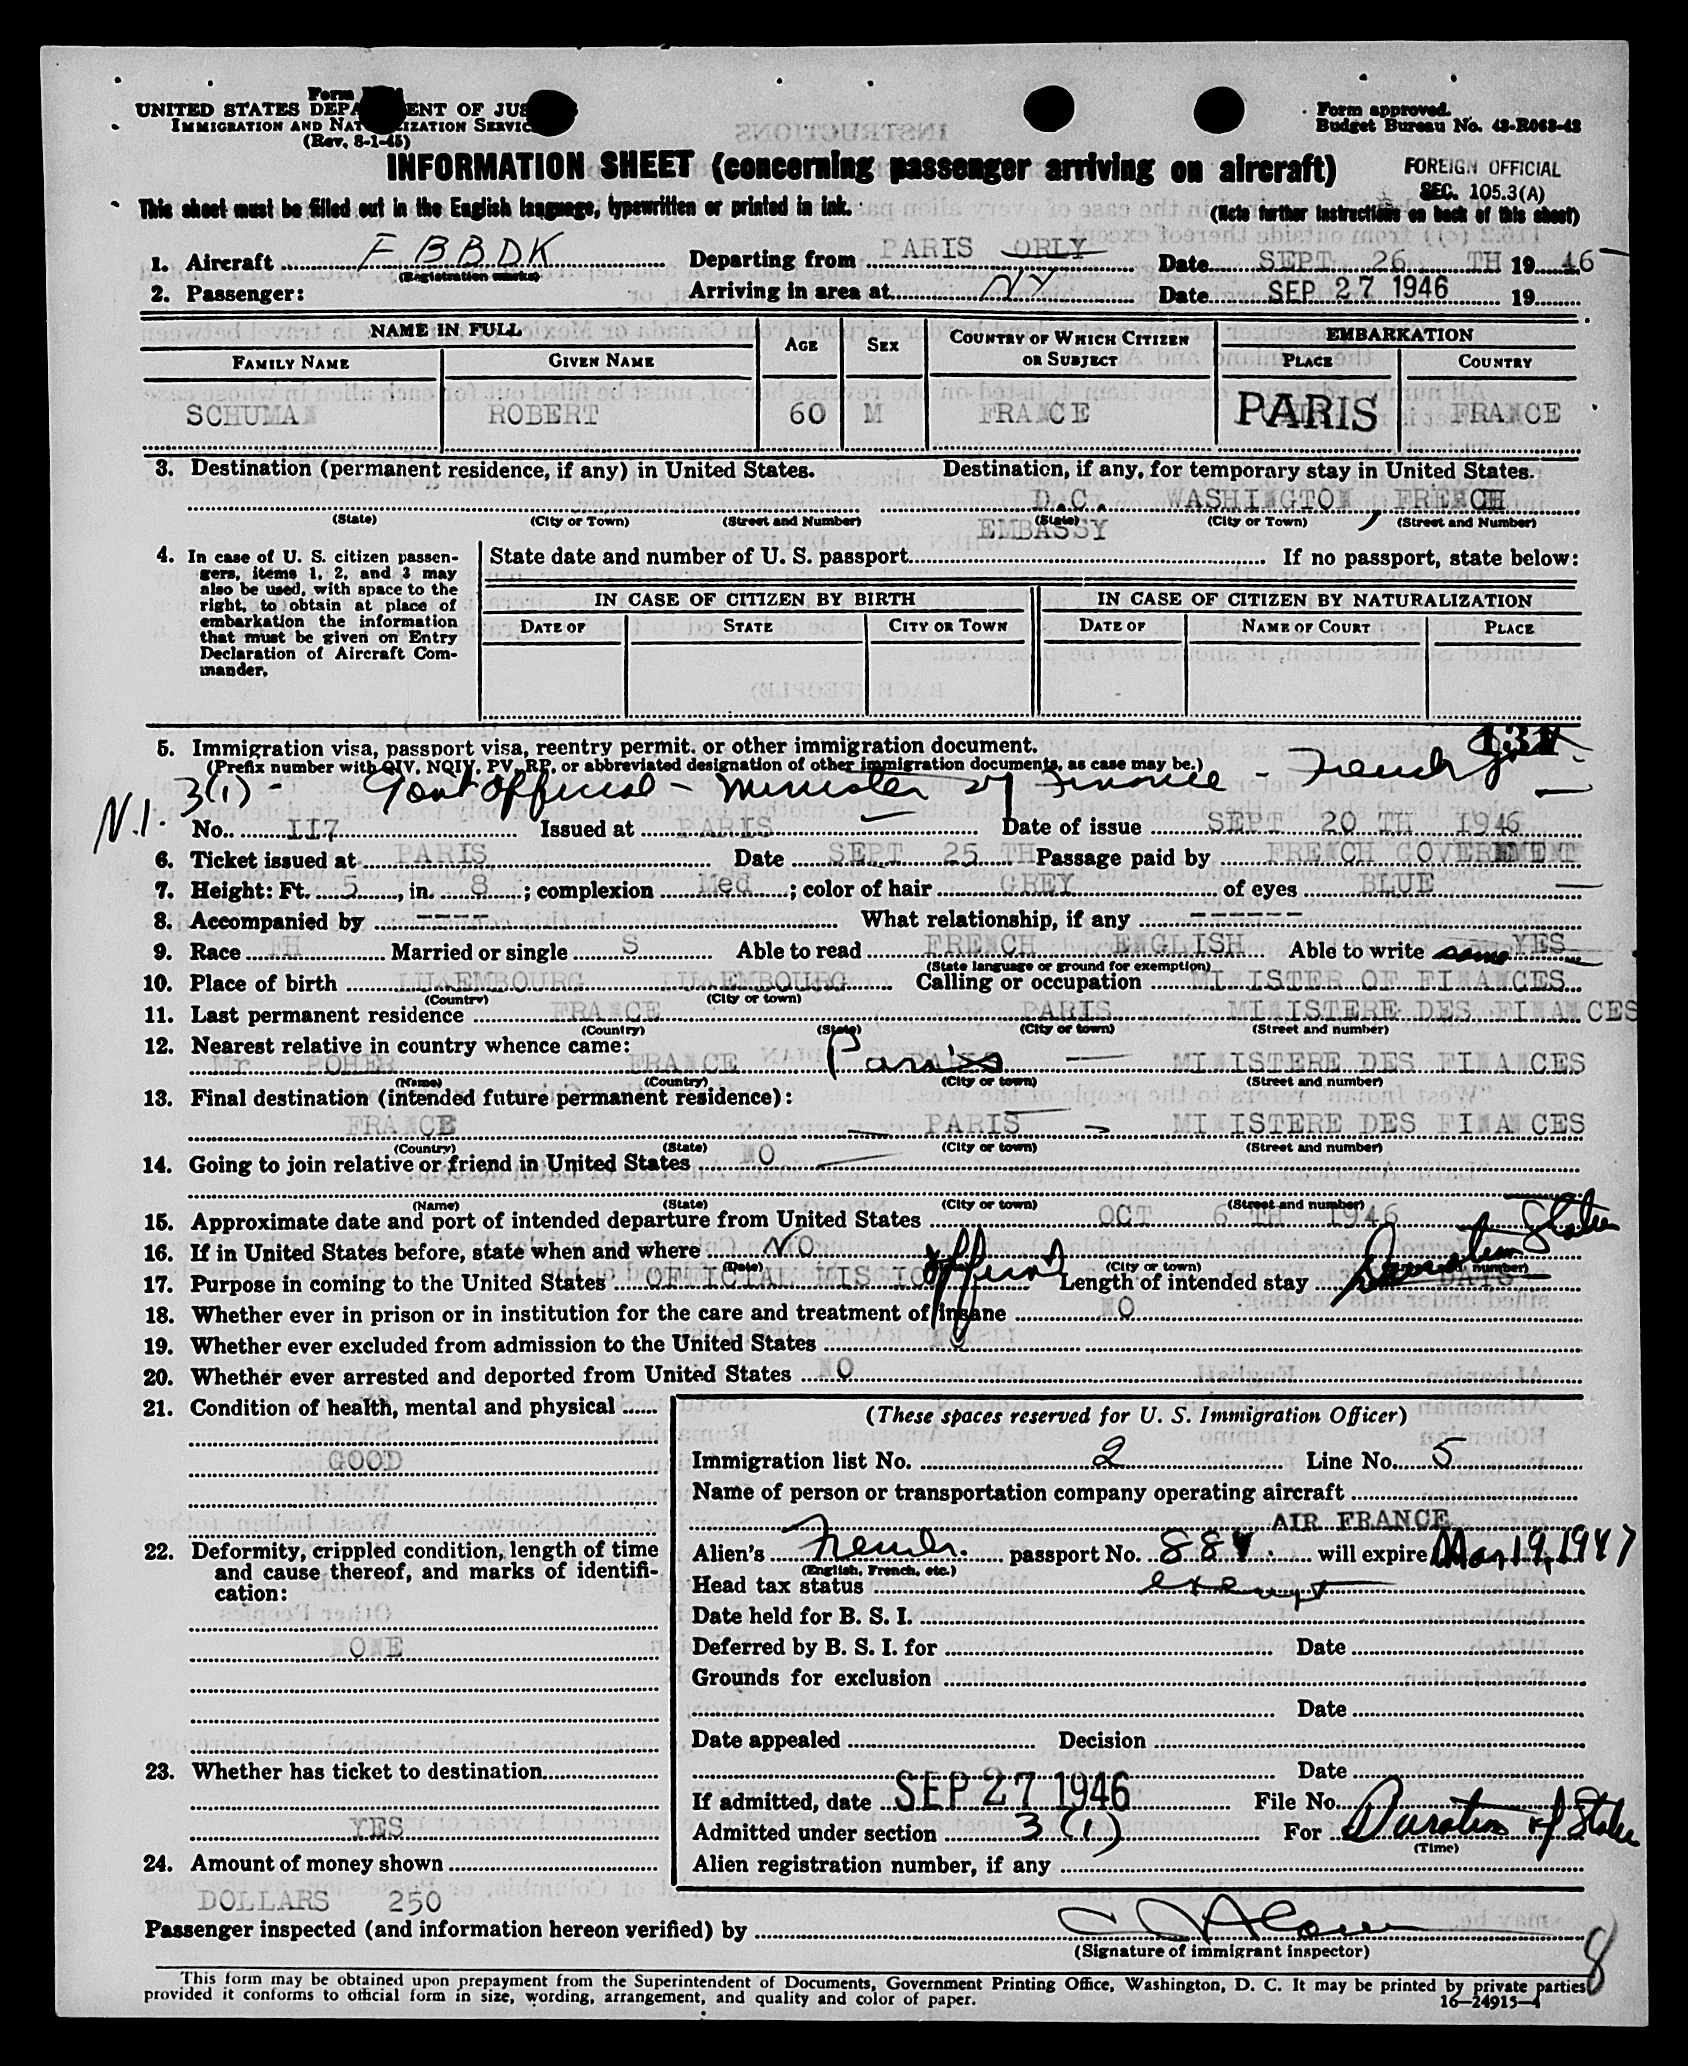 UNITED STATES DEPARTMENT OF JUS
IMMIGRATION AND NATURALIZATION SERVIC
(Rev. 8-1-45)
Form approved.
Budget Bureau No. 43-R068-42
INFORMATION SHEET (concerning passenger arriving on aircraft)
FOREIGN OFFICIAL
SEC. 105.3(A)
This sheet must be filled out in the English language, typewritten or printed in ink.
(Note further instructions on back of this sheet)
1. Aircraft F BBDK Departing from PARIS ORLY Date SEPT 26 TH 19 46
(Registration marks)
2. Passenger: Arriving in area at NY Date SEP 27 1946 19
NAME IN FULL AGE SEX COUNTRY OF WHICH CITIZEN OR SUBJECT EMBARKATION
FAMILY NAME GIVEN NAME PLACE COUNTRY
SCHUMAN ROBERT 60 M FRANCE PARIS FRANCE
3. Destination (permanent residence, if any) in United States. Destination, if any, for temporary stay in United States.
D.C. WASHINGTON, FRENCH
(State) (City or Town) (Street and Number) (State) (City or Town) (Street and Number)
EMBASSY
4. In case of U. S. citizen passengers, items 1, 2, and 3 may also be used, with space to the right, to obtain at place of embarkation the information that must be given on Entry Declaration of Aircraft Commander.
State date and number of U. S. passport If no passport, state below:
IN CASE OF CITIZEN BY BIRTH IN CASE OF CITIZEN BY NATURALIZATION
DATE OF STATE CITY OR TOWN DATE OF NAME OF COURT PLACE
5. Immigration visa, passport visa, reentry permit, or other immigration document.
(Prefix number with QIV, NQIV, PV, RP, or abbreviated designation of other immigration documents, as case may be.)
N.I. 3(1) - Govt Official - Minister of Finance - French
No. 117 Issued at PARIS Date of issue SEPT 20 TH 1946
6. Ticket issued at PARIS Date SEPT 25 TH Passage paid by FRENCH GOVERNEMENT
7. Height: Ft. 5, in. 8; complexion Med; color of hair GREY of eyes BLUE
8. Accompanied by ---- What relationship, if any ------
9. Race TH Married or single S Able to read FRENCH ENGLISH Able to write same YES
(State language or ground for exemption)
10. Place of birth LUXEMBOURG LUXEMBOURG Calling or occupation MINISTER OF FINANCES
(Country) (City or town)
11. Last permanent residence FRANCE PARIS MINISTERE DES FINANCES
(Country) (State) (City or town) (Street and number)
12. Nearest relative in country whence came:
Mr POHER FRANCE Paris PARIS MINISTERE DES FINANCES
(Name) (Country) (City or town) (Street and number)
13. Final destination (intended future permanent residence):
FRANCE PARIS MINISTERE DES FINANCES
(Country) (State) (City or town) (Street and number)
14. Going to join relative or friend in United States NO
(Name) (State) (City or town) (Street and number)
15. Approximate date and port of intended departure from United States OCT 6 TH 1946
16. If in United States before, state when and where NO Duration Status
(Date) (City or town)
17. Purpose in coming to the United States OFFICIAL MISSION official Length of intended stay DAYS
18. Whether ever in prison or in institution for the care and treatment of insane NO
19. Whether ever excluded from admission to the United States NO
20. Whether ever arrested and deported from United States NO
21. Condition of health, mental and physical
GOOD
22. Deformity, crippled condition, length of time and cause thereof, and marks of identification:
NONE
23. Whether has ticket to destination
YES
24. Amount of money shown
DOLLARS 250
(These spaces reserved for U. S. Immigration Officer)
Immigration list No. 2 Line No. 5
Name of person or transportation company operating aircraft
AIR FRANCE
Alien's French passport No. 884 will expire Mar 19, 1947
(English, French, etc.)
Head tax status exempt
Date held for B. S. I.
Deferred by B. S. I. for Date
Grounds for exclusion
Date
Date appealed Decision
Date
If admitted, date SEP 27 1946 File No.
Admitted under section 3(1) For Duration of Status
(Time)
Alien registration number, if any
Passenger inspected (and information hereon verified) by
(Signature of immigrant inspector)
8
This form may be obtained upon prepayment from the Superintendent of Documents, Government Printing Office, Washington, D. C. It may be printed by private parties
provided it conforms to official form in size, wording, arrangement, and quality and color of paper.
16—24915-1